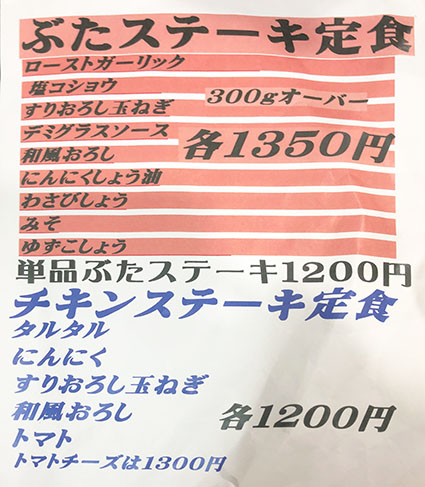 ぶたステーキ定食
ローストガーリック
塩コショウ
すりおろし玉ねぎ
300gオーバー
デミグラスソース
各1350円
和風おろし
にんにくしょう油
わさびしょう
みそ
ゆずこしょう
単品ぶたステーキ1200円
チキンステーキ定食
タルタル
にんにく
すりおろし玉ねぎ
和風おろし
各1200円
トマト
トマトチーズは1300円